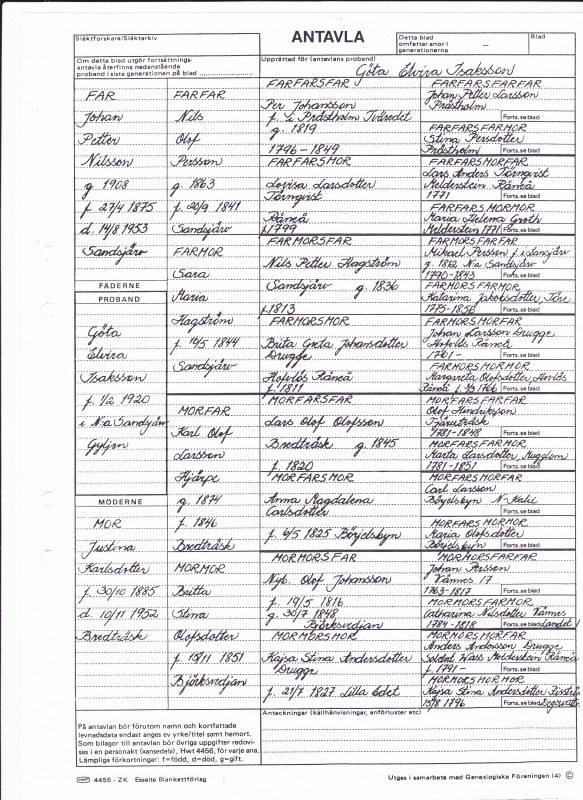 Släktforskare/Släktarkiv
ANTAVLA
Detta blad
omfattar anor i
generationerna
–
Blad
Om detta blad utgör fortsättnings-
antavla återfinns nedanstående
proband i sista generationen på blad
Upprättad för (antavlans proband)
Göta Elvira Isaksson
FAR
Johan
Petter
Nilsson
g. 1908
f. 27/4 1875
d. 14/8 1953
Sandsjärv
FÄDERNE
PROBAND
Göta
Elvira
Isaksson
f. 1/2 1920
i N:a Sandsjärv
Gyljen
MÖDERNE
MOR
Justina
Karlsdotter
f. 30/10 1885
d. 10/11 1952
Bredträsk
FARFAR
Nils
Olof
Persson
g. 1863
f. 20/9 1841
Sandsjärv
FARMOR
Sara
Maria
Hagström
f. 14/5 1844
Sandsjärv
MORFAR
Karl Olof
Larsson
Hjärpe
g. 1874
f. 1846
Bredträsk
MORMOR
Britta
Stina
Olofsdotter
f. 15/11 1851
Björksvedjan
FARFARSFAR
Per Johansson
f. i Prästholm Tväredet
g. 1819
1796-1849
FARFARSMOR
Lovisa Larsdotter
Törnqvist
Råneå
f. 1799
FARMORSFAR
Nils Petter Hagström
Sandsjärv g. 1836
f. 1813
FARMORSMOR
Brita Greta Johansdotter
Drugge
Hofvlös Råneå
f. 1811
MORFARSFAR
Lars Olof Olofsson
Bredträsk g. 1845
f. 1820
MORFARSMOR
Anna Magdalena
Carlsdotter
f. 6/5 1825 Börjelsbyn
MORMORSFAR
Nyb. Olof Johansson
f. 19/5 1816
g. 30/7 1848
Björksvedjan
MORMORSMOR
Kajsa Stina Andersdotter
Drugge
f. 21/7 1827 Lilla Edet
FARFARSFARFAR
Johan Petter Larsson
Prästholm
Forts. se blad
FARFARSFARMOR
Stina Persdotter
Prästholm
Forts. se blad
FARFARSMORFAR
Lars Anders Törnqvist
Melderstein Råneå
1771
Forts. se blad
FARFARSMORMOR
Maria Helena Groth
Melderstein 1771
Forts. se blad
FARMORSFARFAR
Mikael Persson f. i Lansjärv
g. 1812 N:a Sandsjärv
1790-1843
Forts. se blad
FARMORSFARMOR
Katarina Jakobsdotter, Töre
1775-1856
Forts. se blad
FARMORSMORFAR
Johan Larsson Drugge
Hofvlös Råneå
1761-
Forts. se blad
FARMORSMORMOR
Margareta Olofsdotter, Hovlös
Råneå f. 1/3 1766
Forts. se blad
MORFARSFARFAR
Olof Hindriksson
Tjäruträsk
1781-1848
Forts. se blad
MORFARSFARMOR
Marta Larsdotter,
1781-1851
Forts. se blad
MORFARSMORFAR
Carl Larsson
Börjelsbyn N-Kalix
Forts. se blad
MORFARSMORMOR
Maria Olofsdotter
Börjelsbyn
Forts. se blad
MORMORSFARFAR
Johan Persson
Vännes 17
1763-1817
Forts. se blad
MORMORSFARMOR
Catharina Nilsdotter Vännes
1784-1818
Forts. se blad
MORMORSMORFAR
Anders Andersson Drugge
Soldat Wass Melderstein Råneå
f. 1791-
Forts. se blad
MORMORSMORMOR
Kajsa Stina Andersdotter
15/8 1796
Forts. se blad
På antavlan bör förutom namn och kortfattade
levnadsdata endast anges ev yrke/titel samt hemort.
Som bilagor till antavlan bör övriga uppgifter redovi-
ses i en personakt (sansedels), Hwt 4456, för varje ana.
Lämpliga förkortningar: f=född, d=död, g=gift.
Anteckningar (källhänvisningar, anförluster etc)
4455 - ZK Esselte Blankettförlag
Utges i samarbete med Genealogiska Föreningen (4) ©